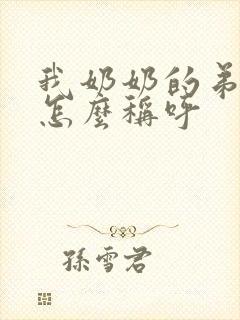 我奶奶的弟
怎麼稱呼
孫雪君